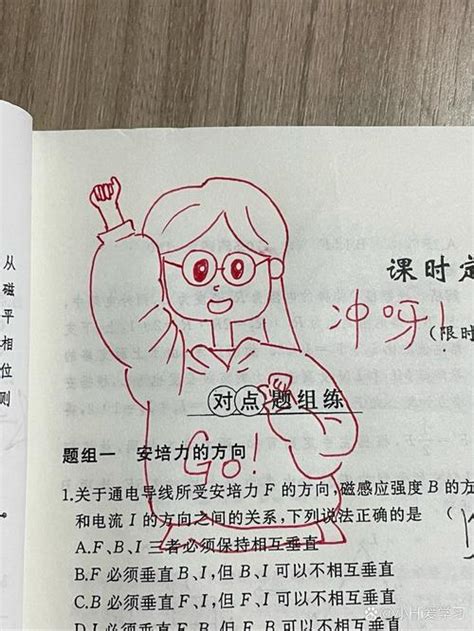 从
磁
平
相
位
则
课时
冲呀!
(限时
对点题组练
Go!
题组一 安培力的方向
1.关于通电导线所受安培力 F 的方向,磁感应强度 B 的方
和电流 I 的方向之间的关系,下列说法正确的是 (
A.F、B、I 三者必须保持相互垂直
B.F 必须垂直 B、I,但 B、I 可以不相互垂直
C.B 必须垂直 F、I,但 F、I 可以不相互垂直
D.I 必须垂直 F、B,但 F、B 可以不相互垂直